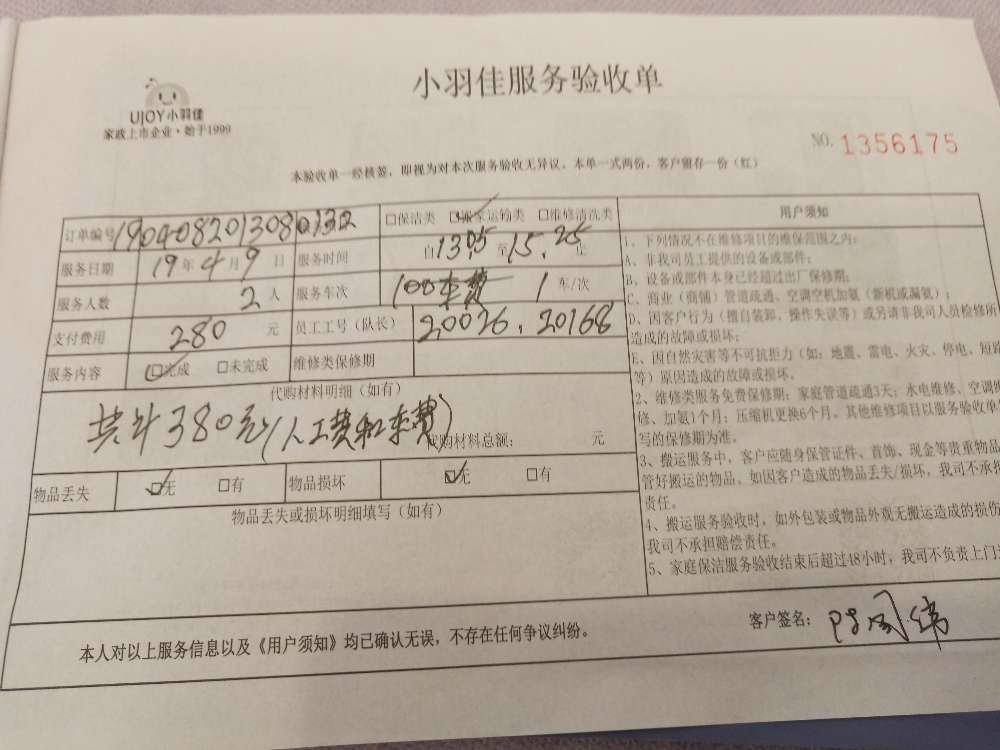 小羽佳服务验收单
UJOY小羽佳
家政上市企业·始于1999
NO. 1356175
本验收单一经核签，即视为对本次服务验收无异议。本单一式两份，客户留存一份（红）
订单编号 190408201308 0132 □保洁类 □搬家运输类 □维修清洗类
服务日期 19年4月9日 服务时间 自13.05至15.25止
服务人数 2人 服务车次 100车费 1车/次
支付费用 280元 员工工号（队长） 20026.20168
服务内容 □完成 □未完成 维修类保修期
代购材料明细（如有）
共计380元（人工费和车费）
代购材料总额： 元
物品丢失 □无 □有 物品损坏 □无 □有
物品丢失或损坏明细填写（如有）
用户须知
1、下列情况不在维修项目的维保范围之内：
A、非我司员工提供的设备或部件；
B、设备或部件本身已经超过出厂保修期；
C、商业（商铺）管道疏通、空调空机加氨（新机或漏氨）；
D、因客户行为（擅自装卸，操作失误等）或另请非我司人员检修所
造成的故障或损坏；
E、因自然灾害等不可抗拒力（如：地震、雷电、火灾、停电、短路
等）原因造成的故障或损坏。
2、维修类服务免费保修期：家庭管道疏通3天；水电维修、空调维
修、加氨1个月；压缩机更换6个月。其他维修项目以服务验收单
写的保修期为准。
3、搬运服务中，客户应随身保管证件、首饰、现金等贵重物品
管好搬运的物品。如因客户造成的物品丢失/损坏，我司不承担
责任。
4、搬运服务验收时，如外包装或物品外观无搬运造成的损伤
我司不承担赔偿责任。
5、家庭保洁服务验收结束后超过48小时，我司不负责上门
本人对以上服务信息以及《用户须知》均已确认无误，不存在任何争议纠纷。
客户签名：